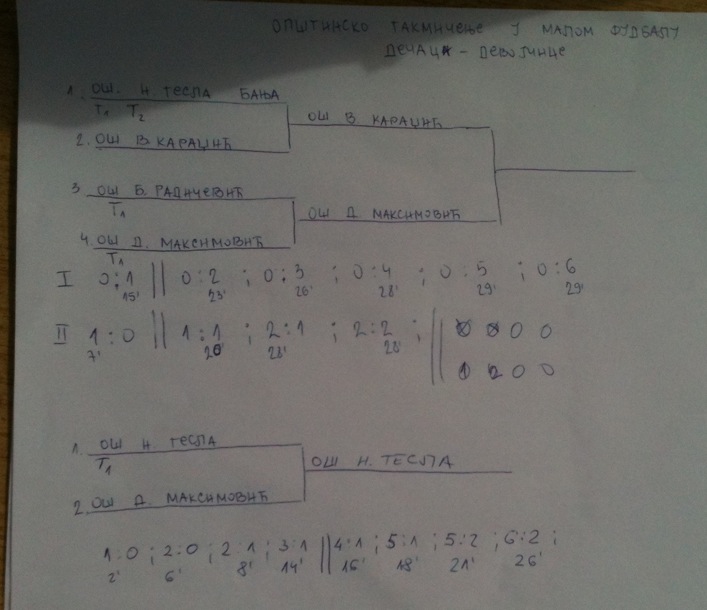 ОПШТИНСКО ТАКМИЧЕЊЕ У МАЛОМ ФУДБАЛУ
ДЕЧАЦИ - ДЕВОЈЧИЦЕ
1. ОШ. Н. ТЕСЛА БАЊА
Т1 Т2
ОШ В. КАРАЏИЋ
2. ОШ В. КАРАЏИЋ
3 ОШ Б. РАДИЧЕВИЋ
Т1
ОШ Д. МАКСИМОВИЋ
4. ОШ Д. МАКСИМОВИЋ
Т1
I 0:1 || 0:2 ; 0:3 ; 0:4 ; 0:5 ; 0:6
15' 23' 26' 28' 29' 29'
II 1:0 || 1:1 ; 2:1 ; 2:2 ; || 0 0
7' 28' 28'
0 0
1. ОШ Н. ТЕСЛА
Т1
ОШ Н. ТЕСЛА
2. ОШ Д. МАКСИМОВИЋ
1:0 ; 2:0 ; 2:1 ; 3:1 || 4:1 ; 5:1 ; 5:2 ; 6:2 ;
2' 6' 8' 14' 16' 18' 21' 26'